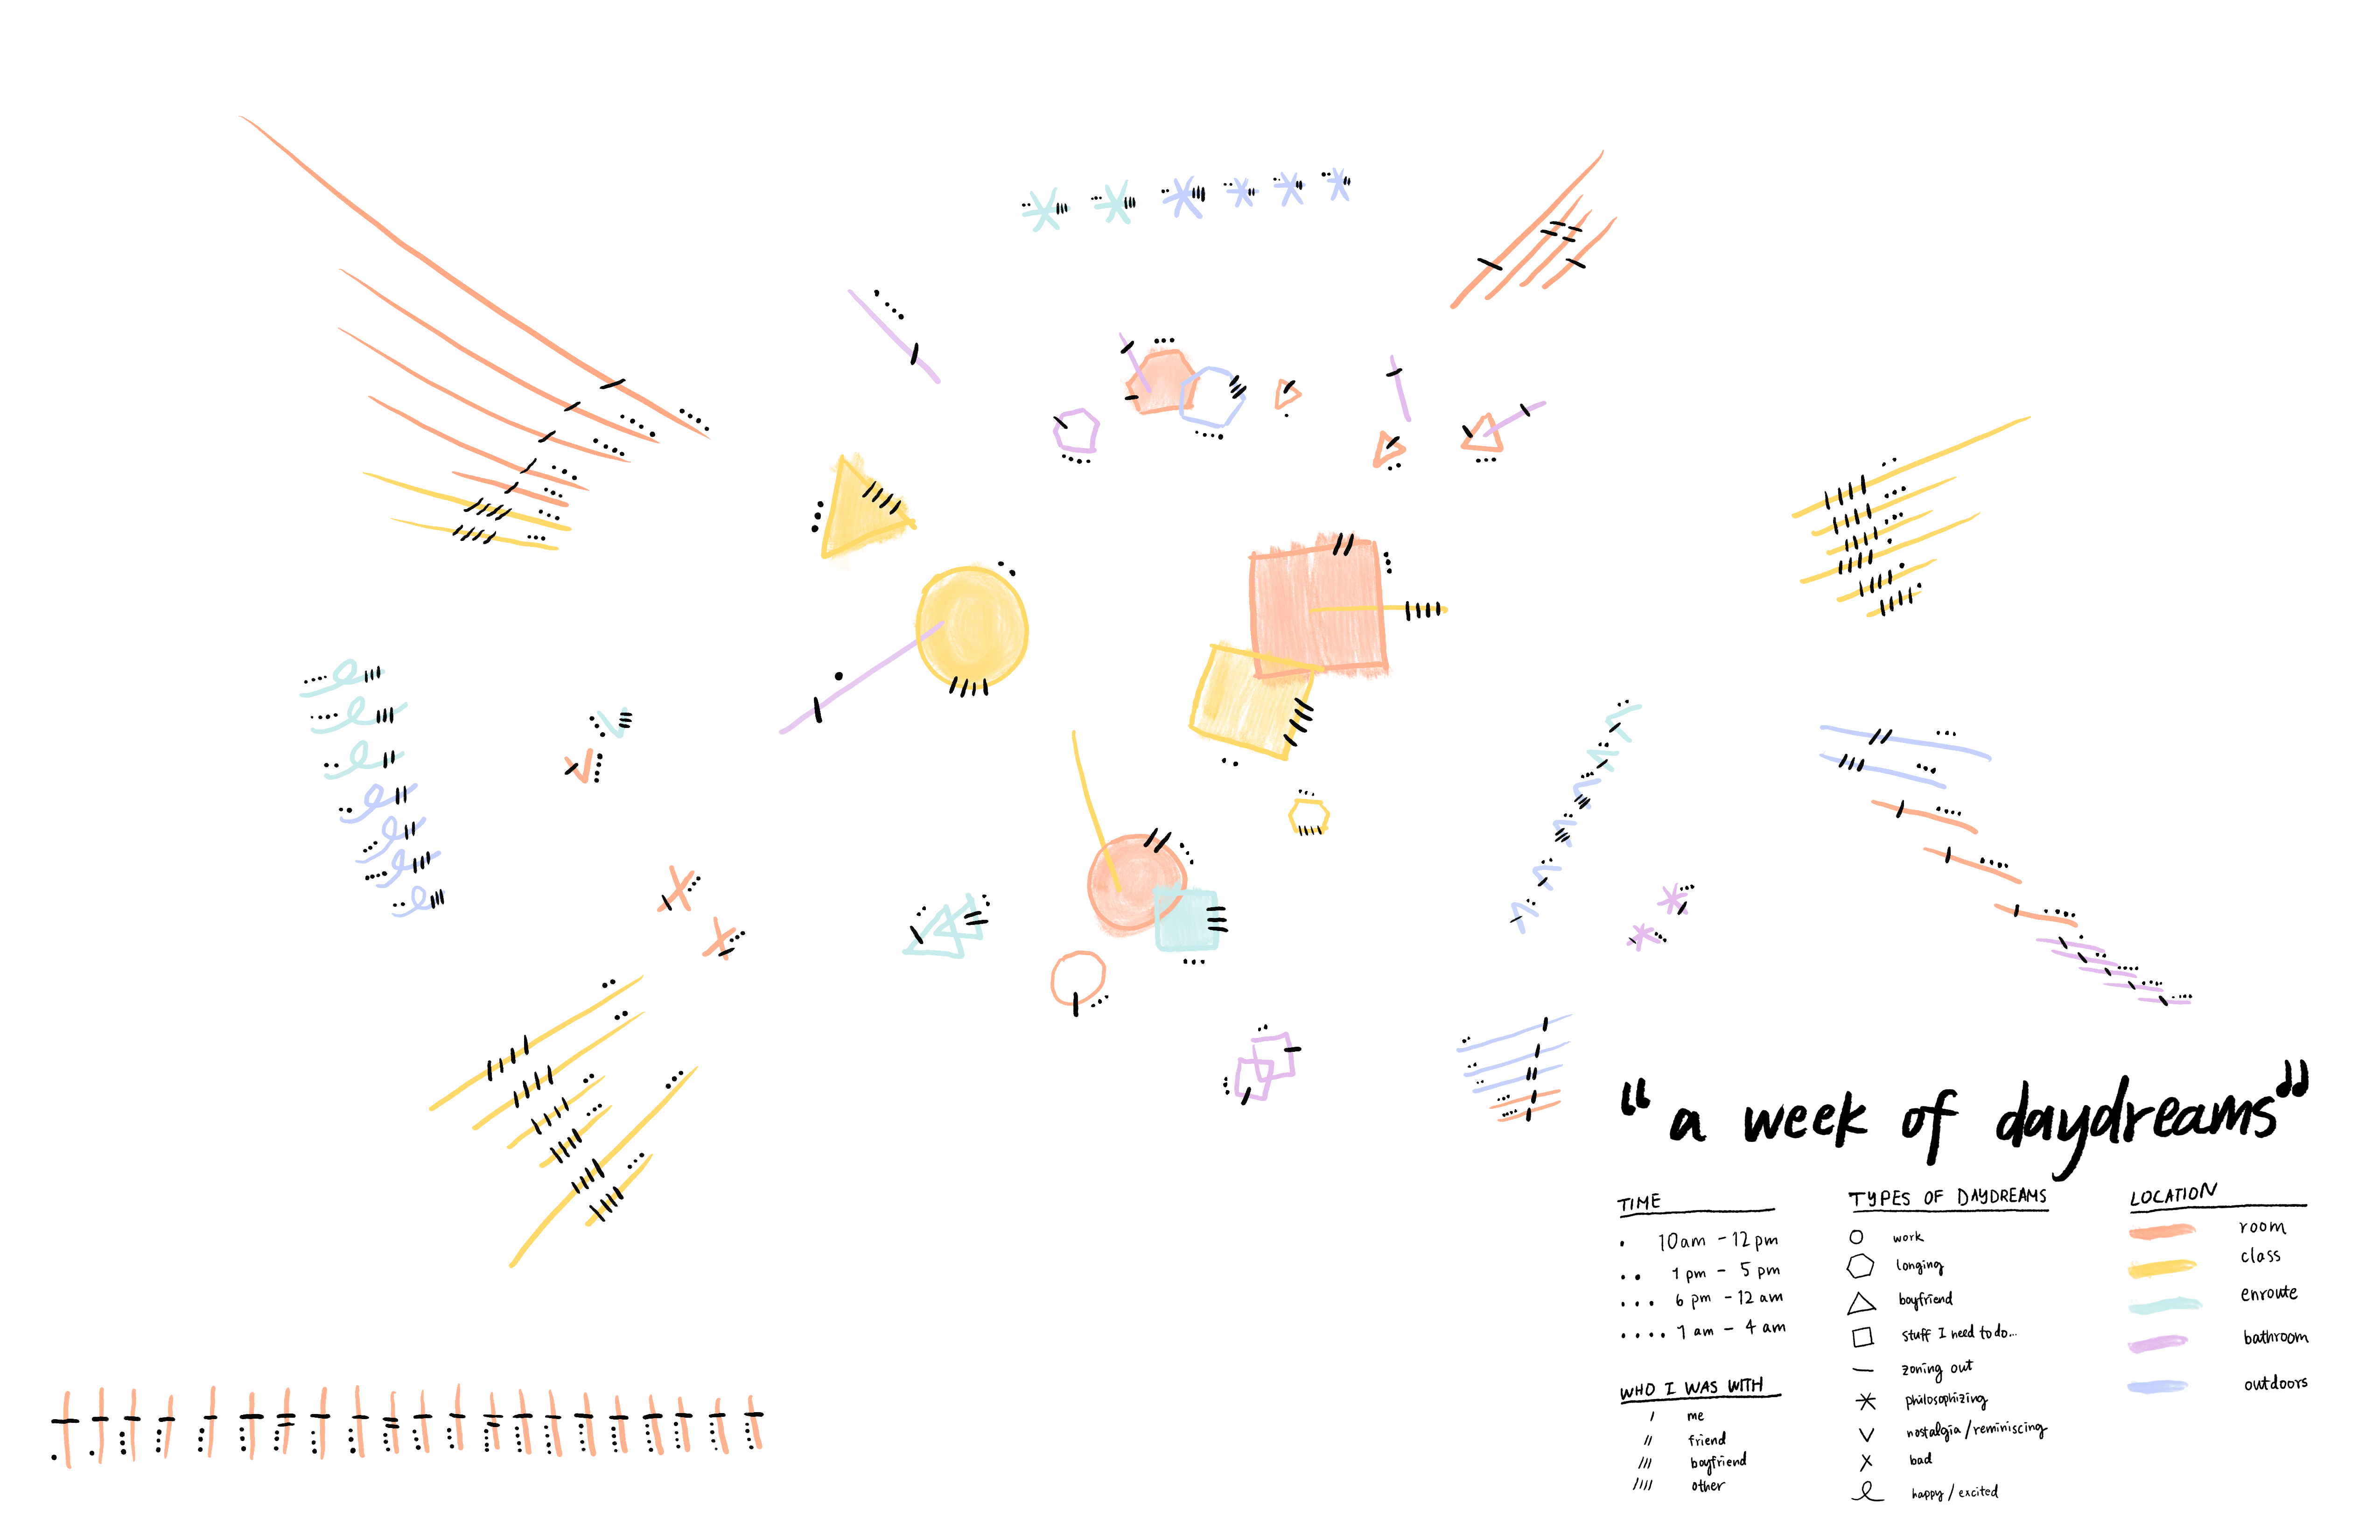 “a week of daydreams”
TIME
10am - 12pm
1pm - 5pm
6pm - 12am
1am - 4am
WHO I WAS WITH
me
friend
boyfriend
other
TYPES OF DAYDREAMS
work
longing
boyfriend
stuff I need to do...
zoning out
philosophizing
nostalgia/reminiscing
bad
happy/excited
LOCATION
room
class
enroute
bathroom
outdoors